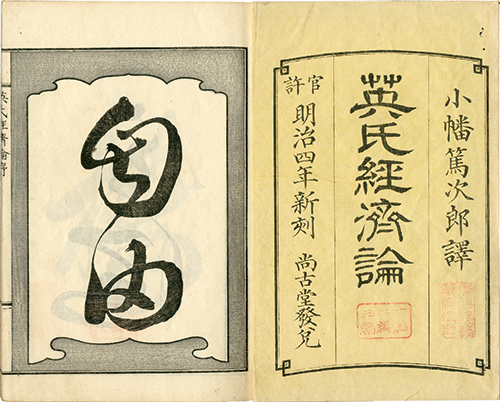 小幡篤次郎譯
英氏經濟論
官許
明治四年新刻 尚古堂發兌
自由
英氏經濟論